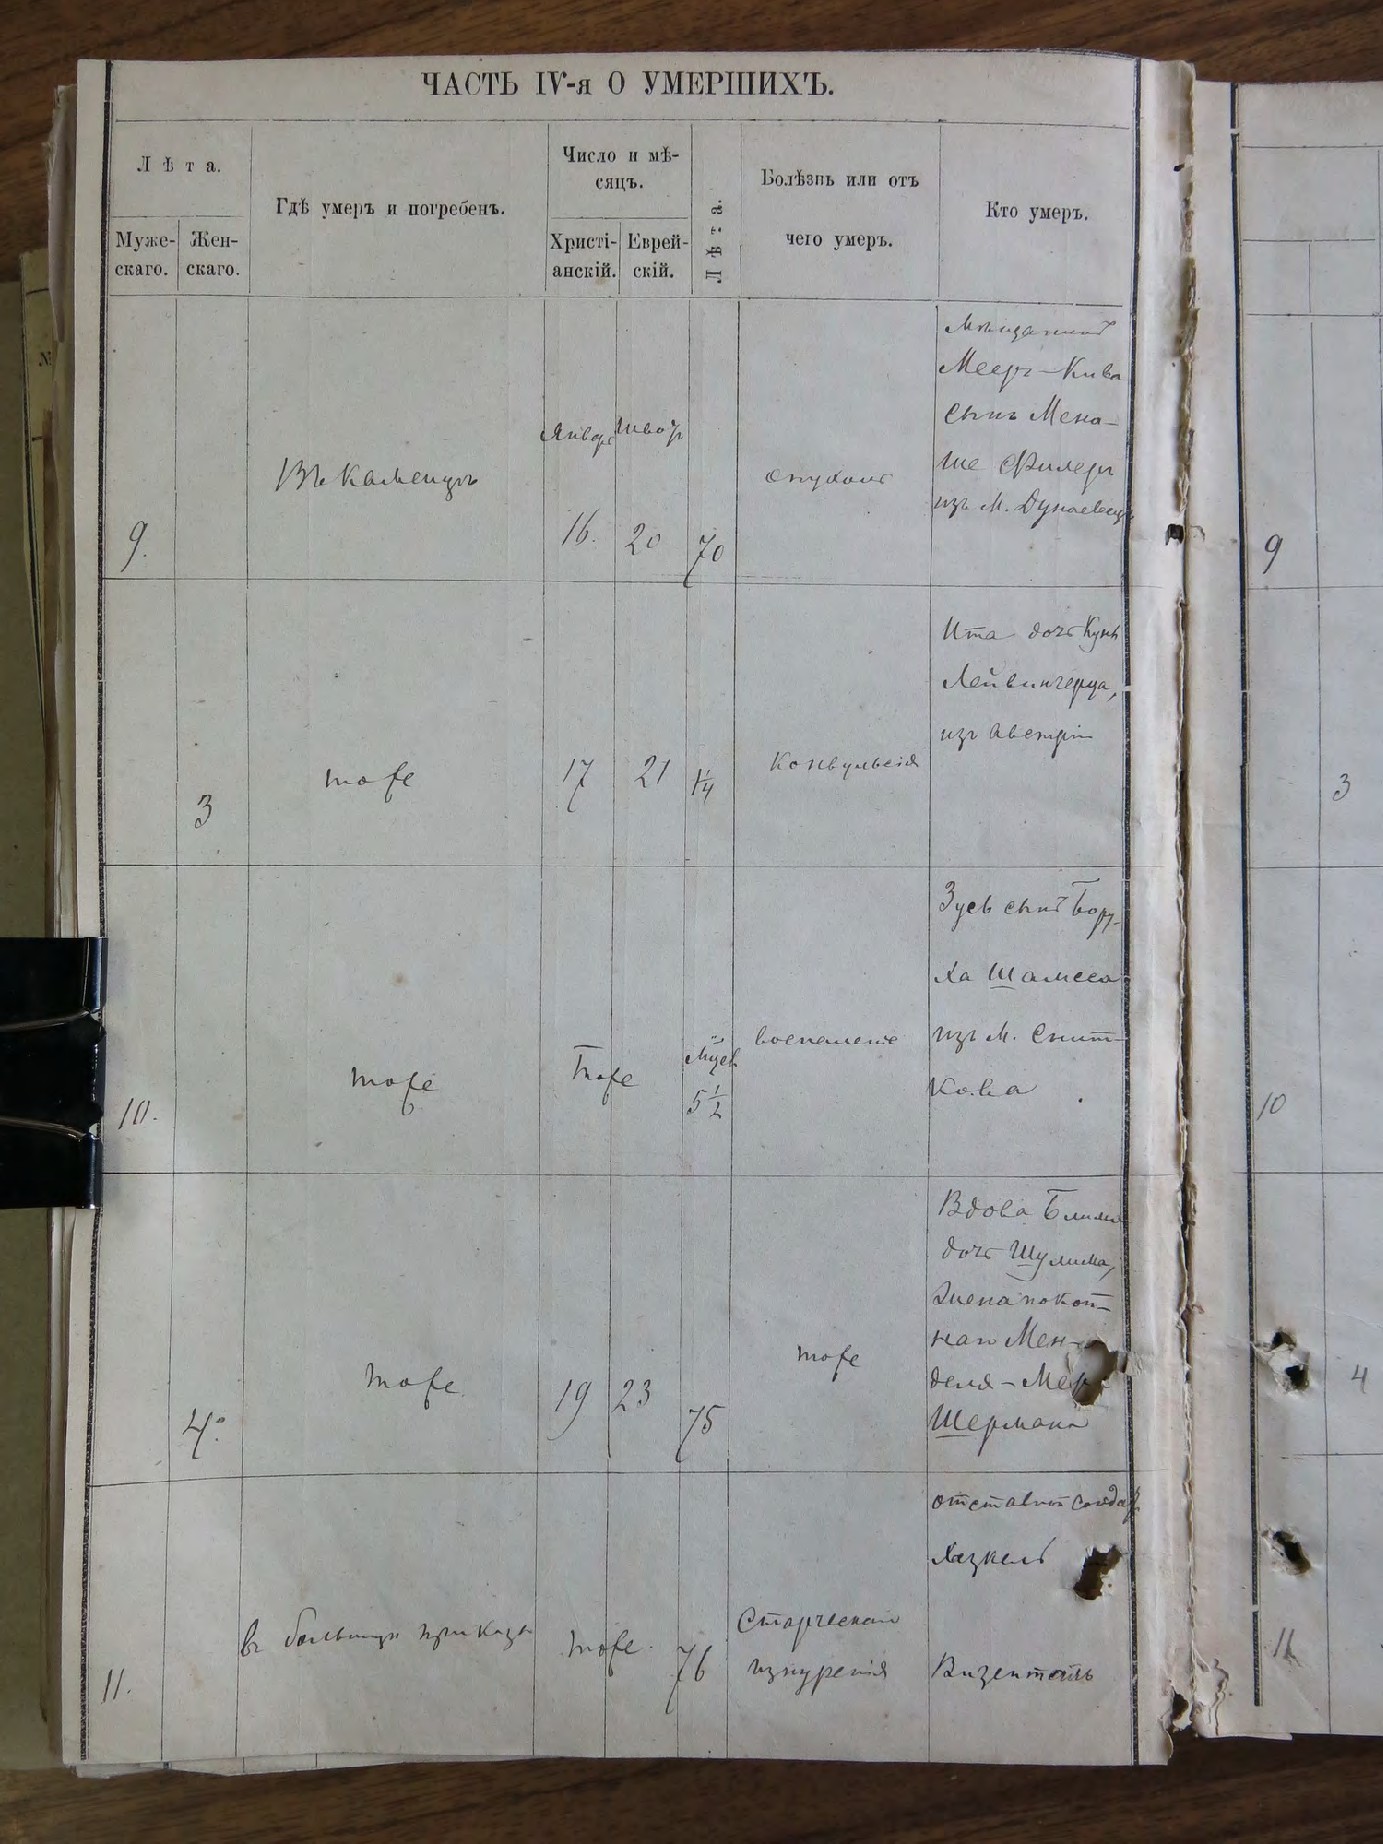 ЧАСТЬ IV-я О УМЕРШИХЪ.
Лѣта.
Муже-
скаго.
Жен-
скаго.
Гдѣ умеръ и погребенъ.
Число и мѣ-
сяцъ.
Христі-
анскій.
Еврей-
скій.
Лѣта.
Болѣзнь или отъ
чего умеръ.
Кто умеръ.
9.
Въ Каменцѣ
Январ
16.
Швот
20
70
опухоль
Мѣщанинъ
Мееръ-Кива
сынъ Мена-
ше Филеръ
изъ М. Дунаевецъ
9
3
тоже
17
21
1/4
Конвульсія
Ита дочь
Лейвингерца,
изъ Австріи
3
10.
тоже
Тоже
Мѣсяц
5 1/2
воспаленіе
Зусь сынъ Бору-
ха Шамеса
изъ М. Снит-
кова
10
4.
тоже
19
23
75
тоже
Вдова Блима
дочь Шулима,
жена покой-
наго Мен-
деля-Меер
Шермана
4
11.
въ больницѣ приказа
тоже
76
Старческая
изнуренія
отставной солдат
Хезкель
Визенталь
11